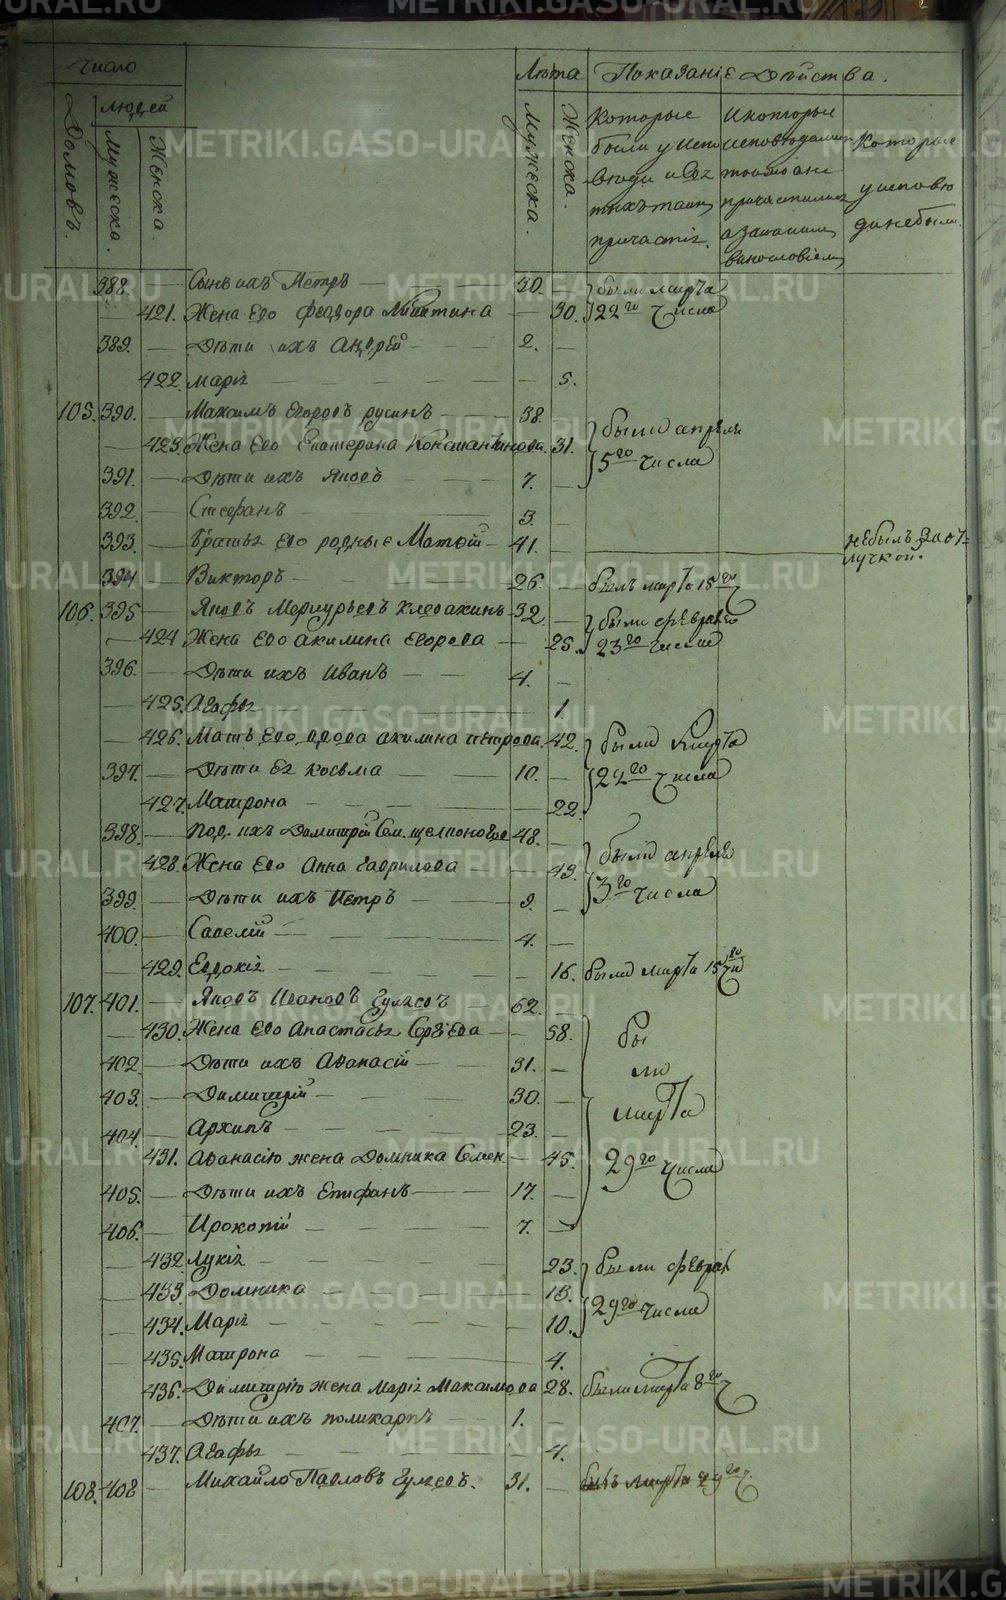 Число
людей
Домовъ.
Мужеска.
Женска.
Лѣта
Мужеска.
Женска.
Показаніе Дѣйства.
Которые были у исповѣди и Святыхъ таинъ причастіе.
И которые исповѣдались токмо а не причастились а за какимъ винословіемъ
Которые у исповѣди не были.
388. Сынъ ихъ Петръ 30.
были марта
421. Жена Его Феодора Никитина 30.
22го числа
389. Дѣти ихъ Андрей 2.
422. Марія 5.
105. 390. Максимъ Егоровъ русинъ 38.
были апрѣля
423. Жена Его Екатерина Константинова 31.
5го числа
391. Дѣти ихъ Яковъ 7.
392. Стефанъ 3.
393. Братья Его родные Матвѣй 41.
небылъ за отлучкой.
394. Викторъ 26.
былъ марта 15го
106. 395 Яковъ Меркурьевъ Клевакинъ 32.
были февраля
424 Жена Его Акилина Егорова 25.
23го числа
396. Дѣти ихъ Иванъ 4.
425. Агафья 1
426. Мать Его вдова Акилина Петрова 42.
были марта
397. Дѣти Ея Косьма 10.
22го числа
427. Матрона 22.
398. Под. ихъ Димитрій Сем. 48.
были апрѣля
428. Жена Его Анна Гаврилова 43.
3го числа
399. Дѣти ихъ Петръ 9.
400. Савелій 4.
429. Евдокія 16.
были марта 15го
107. 401. Яковъ Ивановъ Гуляевъ 62.
430. Жена Его Анастасья Сергѣева 58.
бы
402 Дѣти ихъ Афанасій 31.
ли
403. Димитрій 30.
марта
404. Архипъ 23.
431. Афанасію жена Домника Семен 45.
29го числа
405. Дѣти ихъ Епифанъ 17.
406. Прокопій 7.
432 Лукія 23.
были феврал
433. Домника 13.
29го числа
434. Марія 10.
435. Матрона 4.
436. Димитрію жена Марія Максимова 28.
были марта 8го
407. Дѣти ихъ Поликарпъ 1.
437. Агафья 4.
108. 408 Михайло Павловъ Гуляевъ. 31.
былъ марта 29го
METRIKI.GASO-URAL.RU